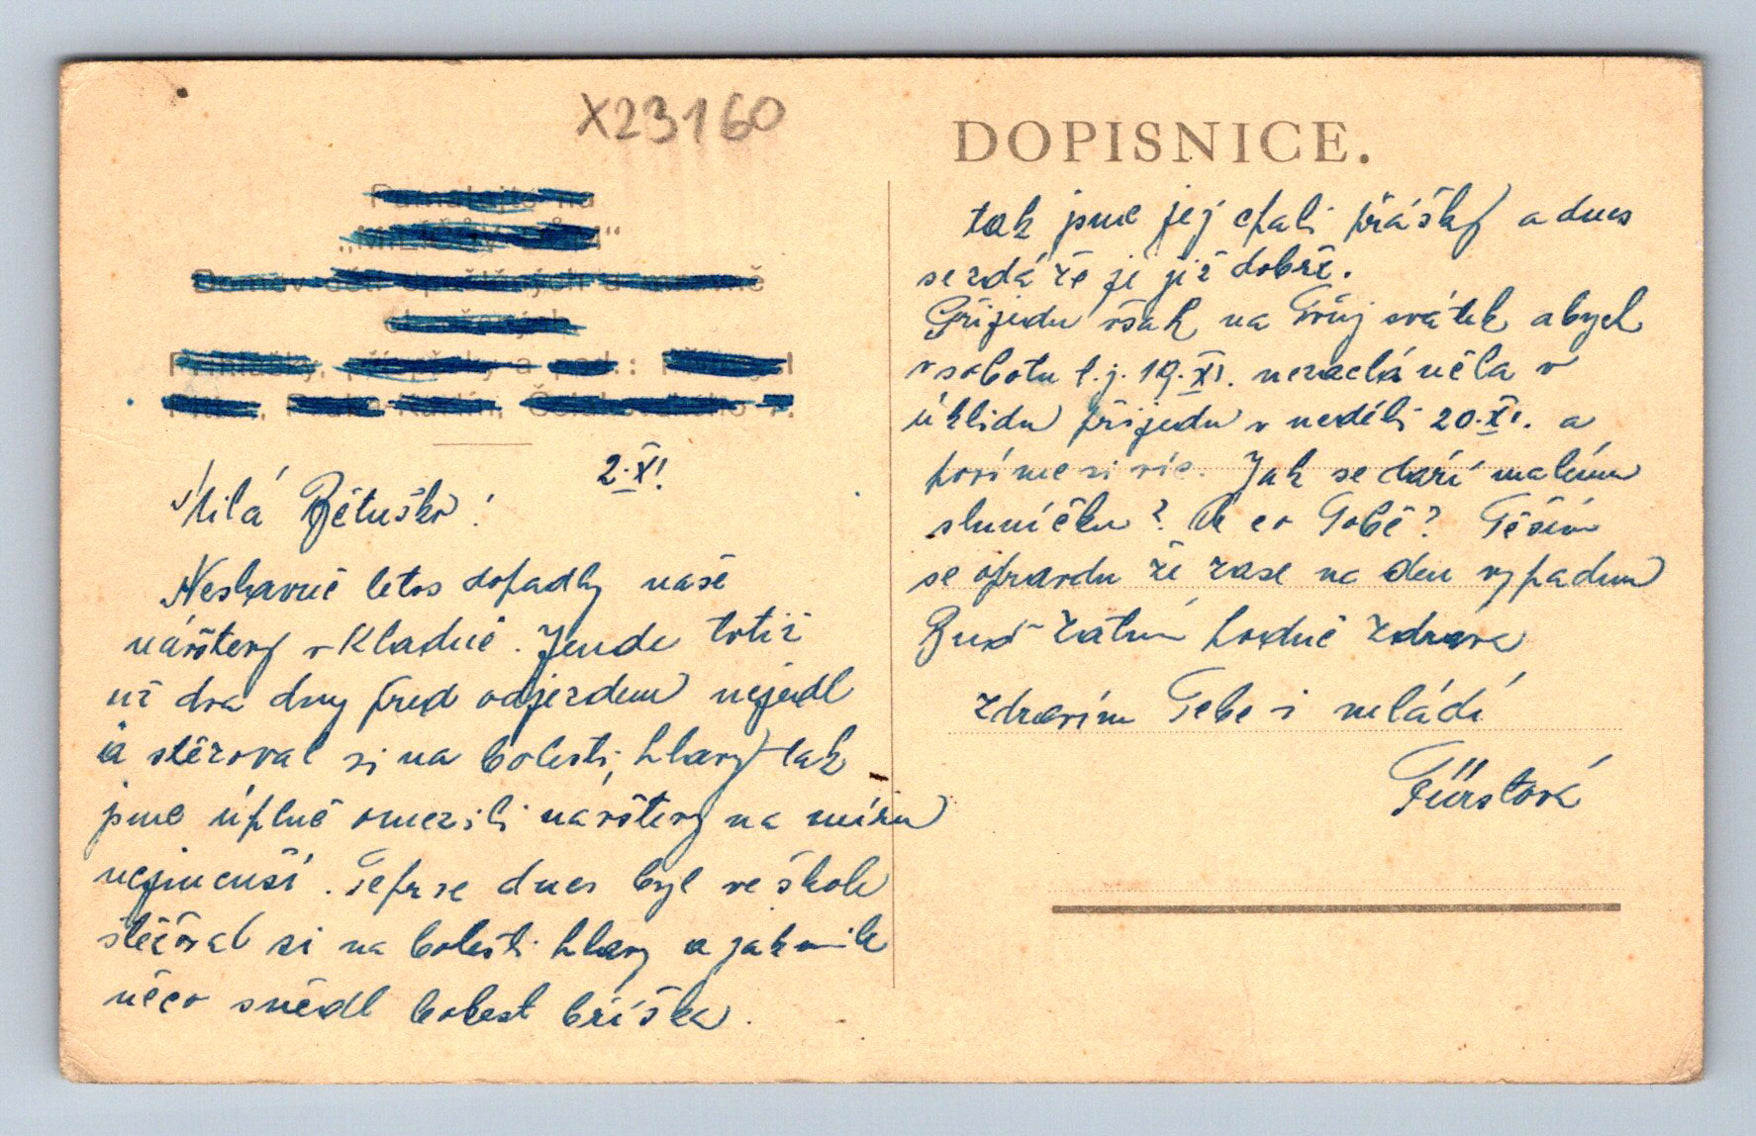 X23160
DOPISNICE.
2.XI.
Milá Bětuško!
Neslavně letos dopadly naše
návštevy v Kladně. Jenda totiž
už dva dny před odjezdem nejedl
a stěžoval si na bolesti hlavy tak
jsme úplně omezili návštevy na míru
nejmenší. Teprve dnes byl ve škole
stěžoval si na bolesti hlavy a jakmile
něco snědl bolest bříška.
tak jsme jej cpali prášky a dnes
se zdá že je již dobře.
Přijedu však na Tvůj svátek abych
v sobotu t.j. 19.XI. nezacláněla v
úklidu přijedu v neděli 20.XI. a
povíme si víc. Jak se daří malému
sluníčku? A co Tobě? Těším
se opravdu že zase na den vypadnu
Buď zatím hodně zdráva
Zdravím Tebe i mládí
Fürstová